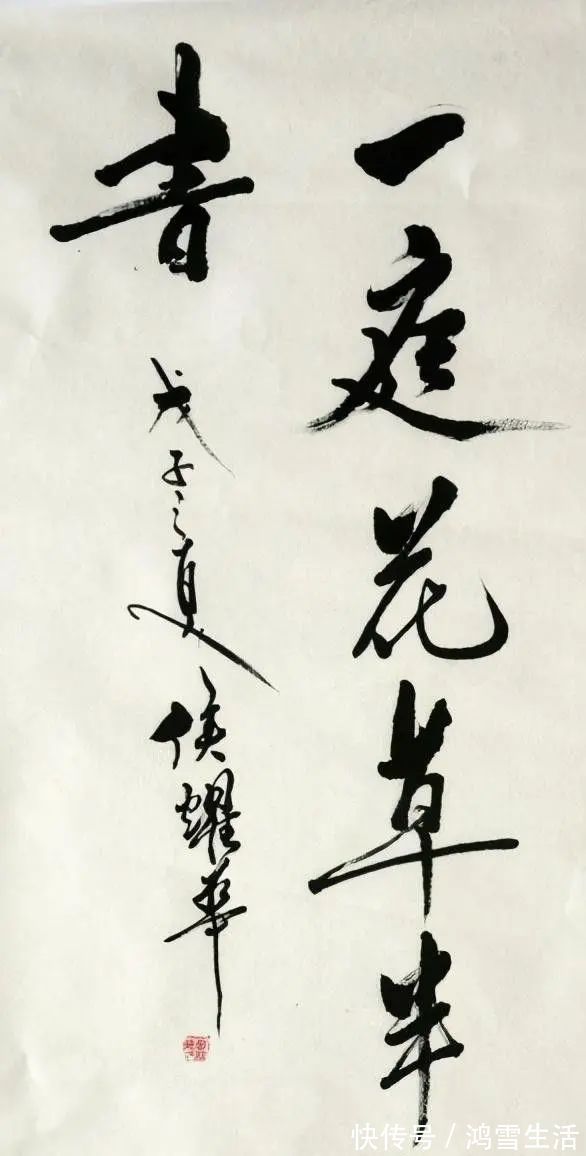 一庭花草半
書
戊子之夏
侯耀華
快传号/鸿雪生活